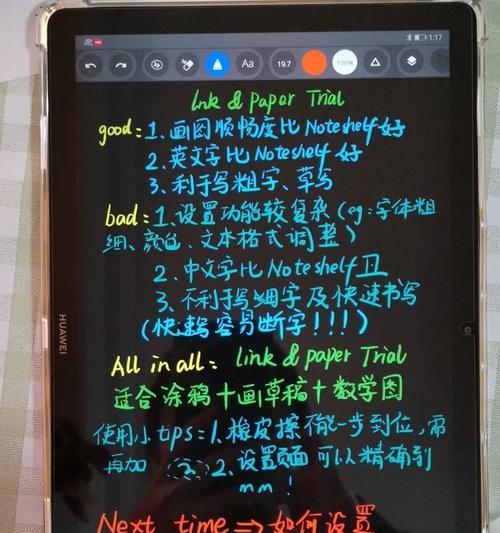 1:17
Aa
19.7
100%
Ink & Paper Trial
good: 1. 画图顺畅度比 Noteshelf 好
2. 英文字比 Noteshelf 好
3. 利于写粗字、草写
bad: 1. 设置功能较复杂 (eg: 字体粗
细、颜色、文本格式调整)
2. 中文字比 Noteshelf 丑
3. 不利于写细字及快速书写
(快速写容易断字!!!)
All in all: Ink & paper Trial
适合涂鸦+画草稿+数学图
使用小tips: 1. 橡皮擦不能一步到位,需
再加 2. 设置页面可以精确到
mm!
Next time => 如何设置
HUAWEI